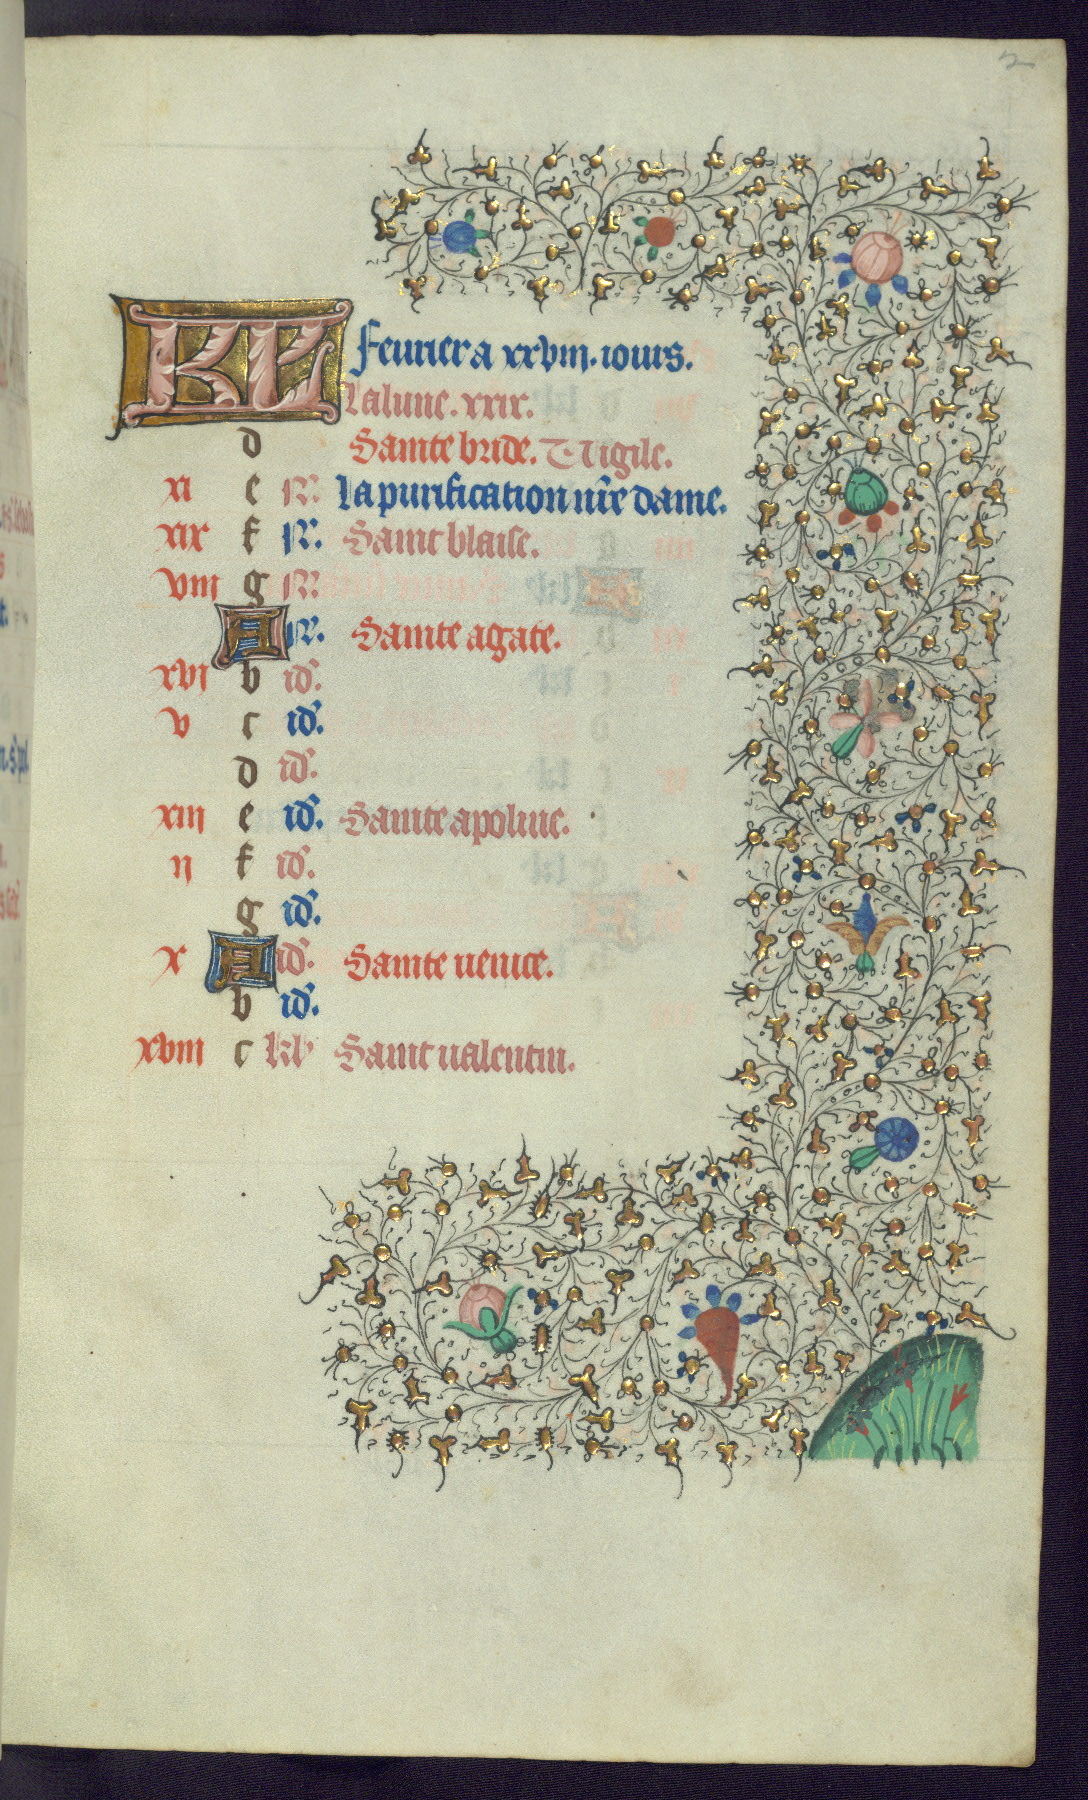 2
KL feurier a xxviii. iours.
La lune. xxix.
d Sainte bride. Vigile.
xi e N. La purification nr̄e dame.
xix f N. Saint blaise.
viii g N.
A N. Sainte agate.
xvi b id.
v c id.
d id.
xiii e id. Sainte apoline.
ii f id.
g id.
x A id. Sainte venice.
b id.
xviii c kl' Saint valentin.